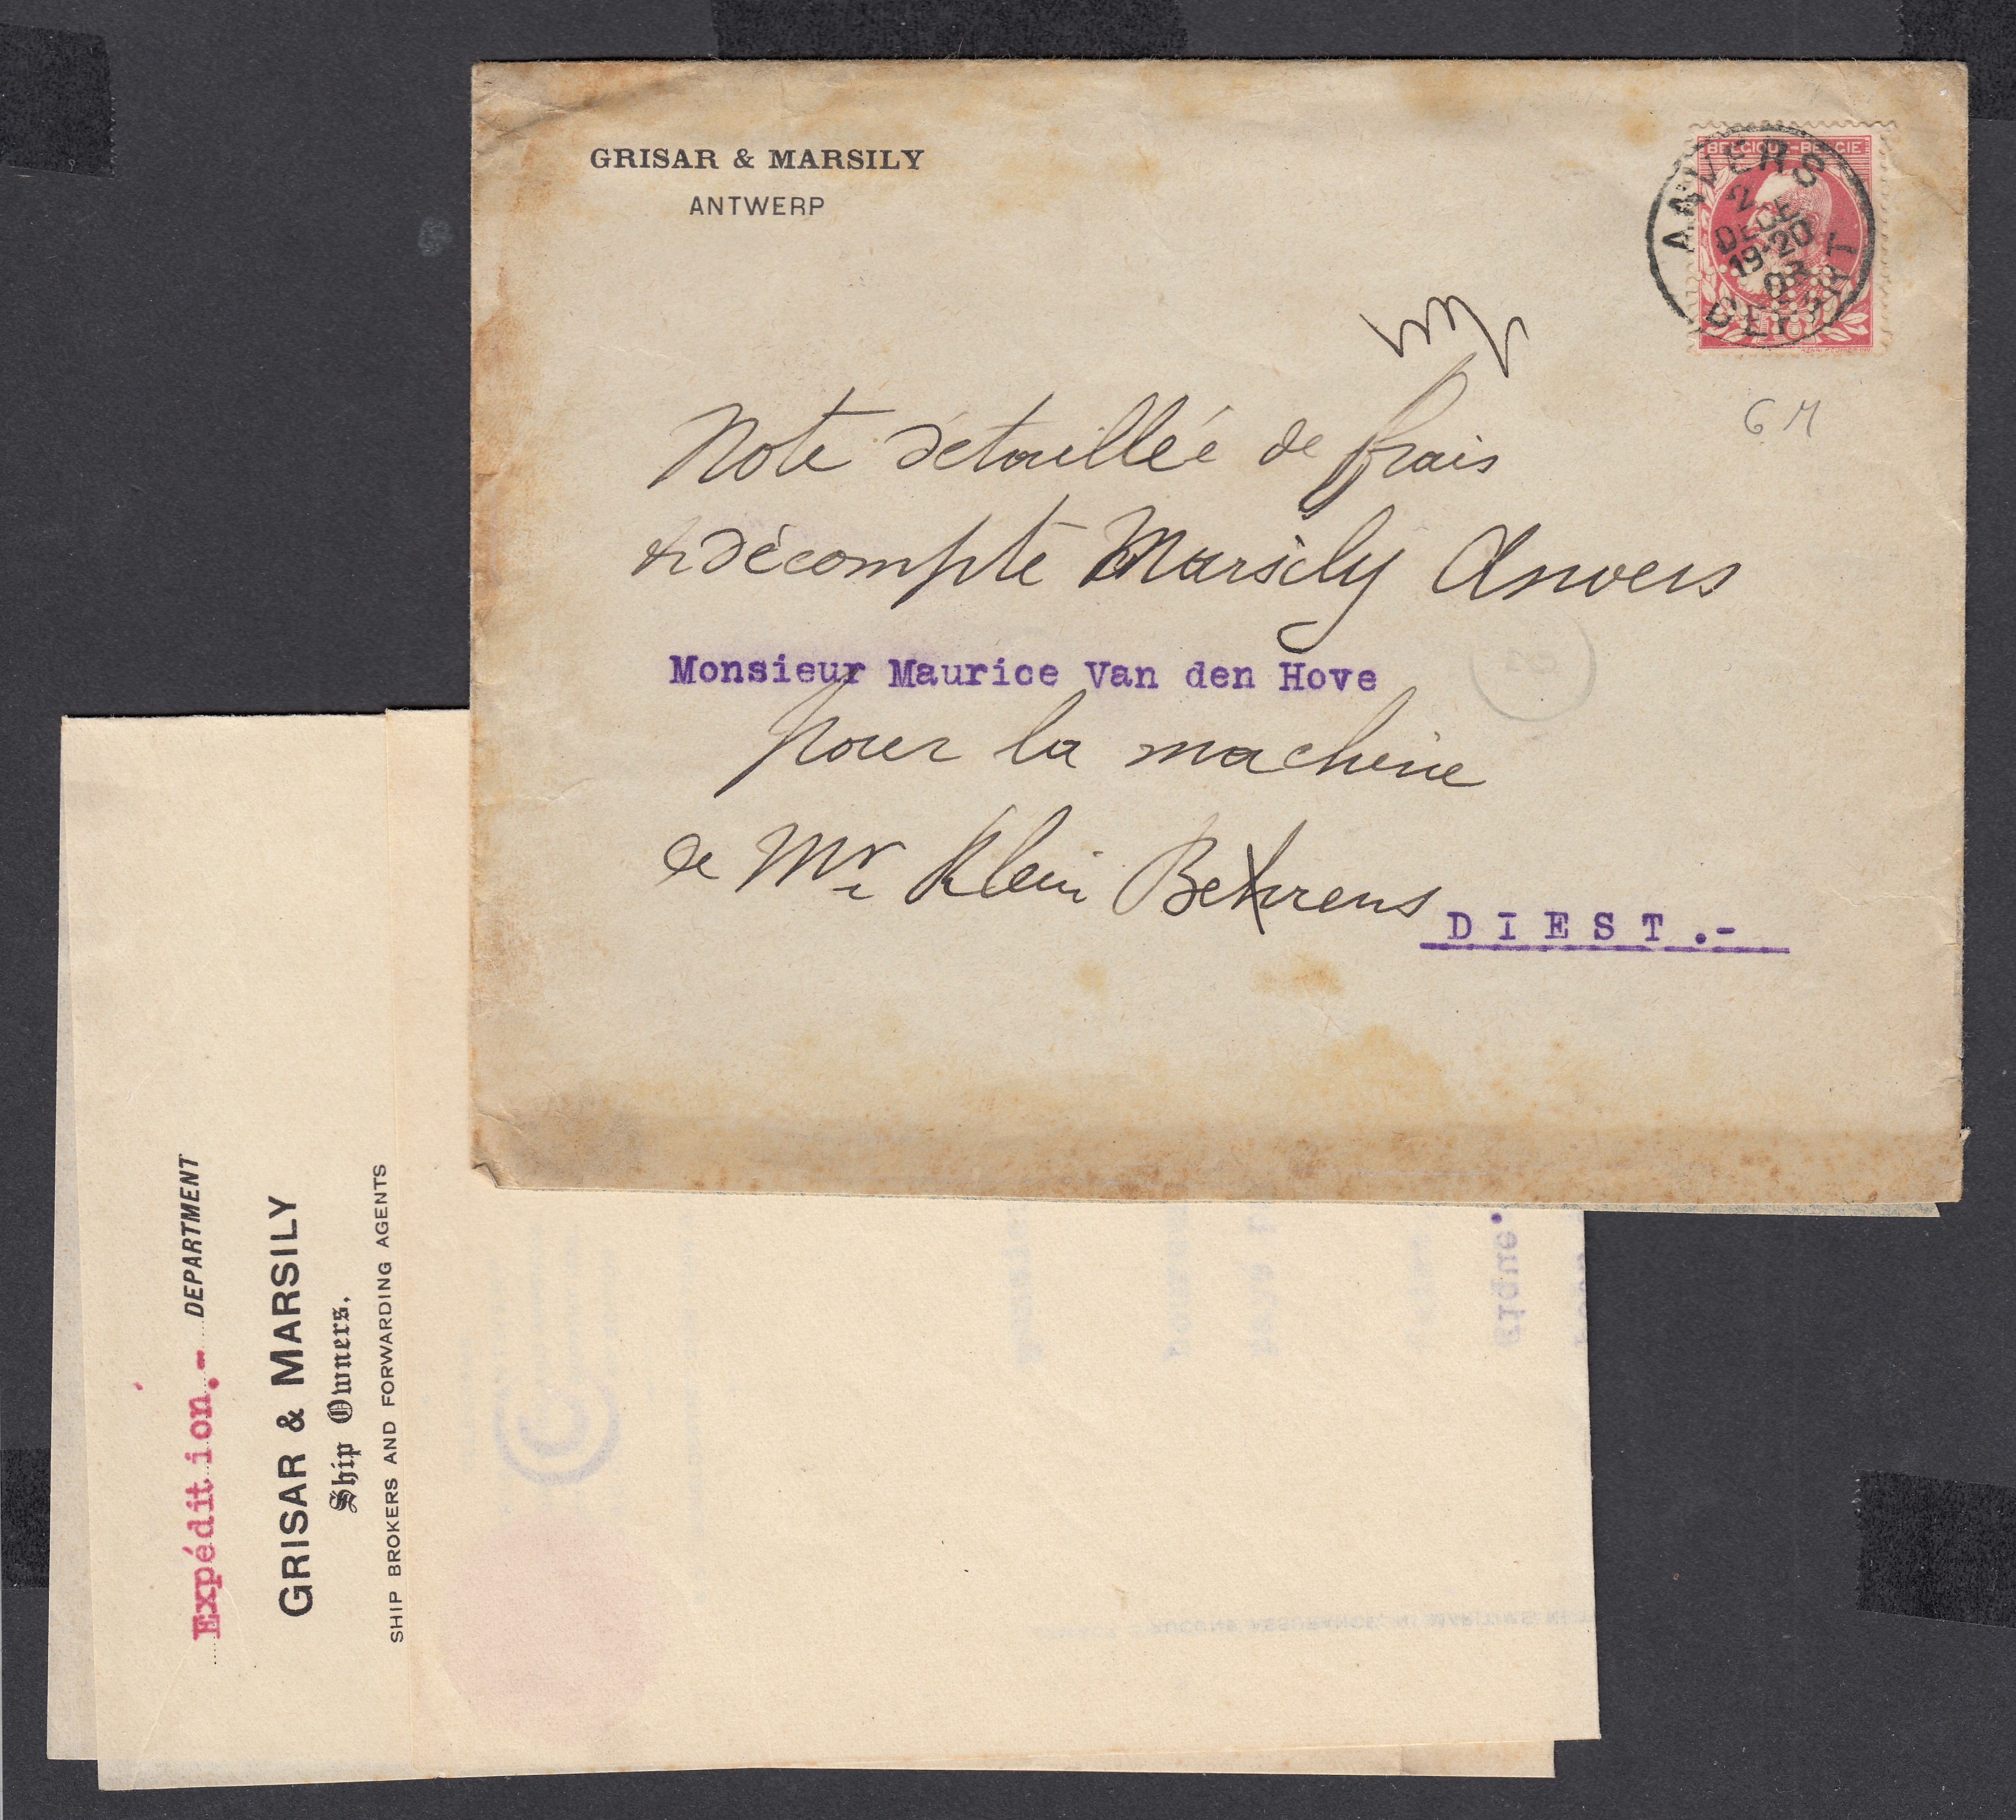 GRISAR & MARSILY
ANTWERP
BELGIQUE-BELGIE
ANVERS
2
DECE
19-20
DEPART
10
GM
Note détaillée de frais
& décompte Marsily Anvers
Monsieur Maurice Van den Hove
pour la machine
de Mr Klein Behrens
DIEST.-
Expédition.- DEPARTMENT
GRISAR & MARSILY
Ship Owners,
SHIP BROKERS AND FORWARDING AGENTS